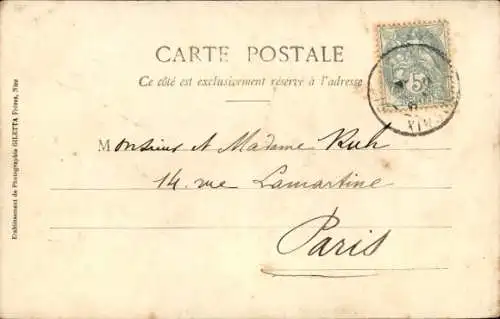 CARTE POSTALE
Ce côté est exclusivement réservé à l'adresse
5
Monsieur et Madame Ruh
14 rue Lamartine
Paris
Etablissement de Photographie GILETTA Frères, Nice